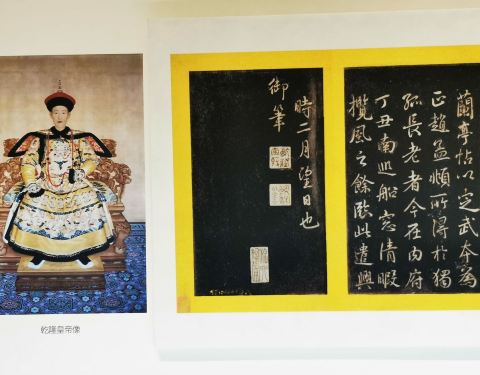 蘭亭帖以定武本為
正趙孟頫所得於獨
孤長老者今在內府
丁丑南巡船窓清暇
攬風之餘臨此遣興
時二月望日也
御筆
乾隆皇帝像